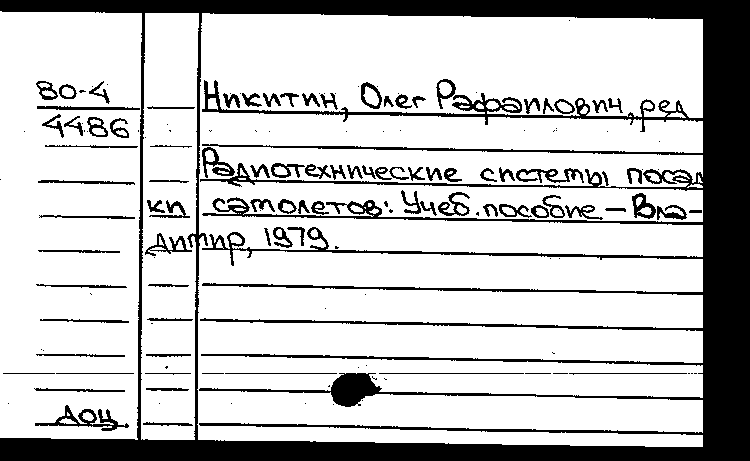 80-4
Никитин, Олег Рафаилович, ред
4486
Радиотехнические системы посад
ки самолетов: Учеб. пособие – Вла-
димир, 1979.
доц.